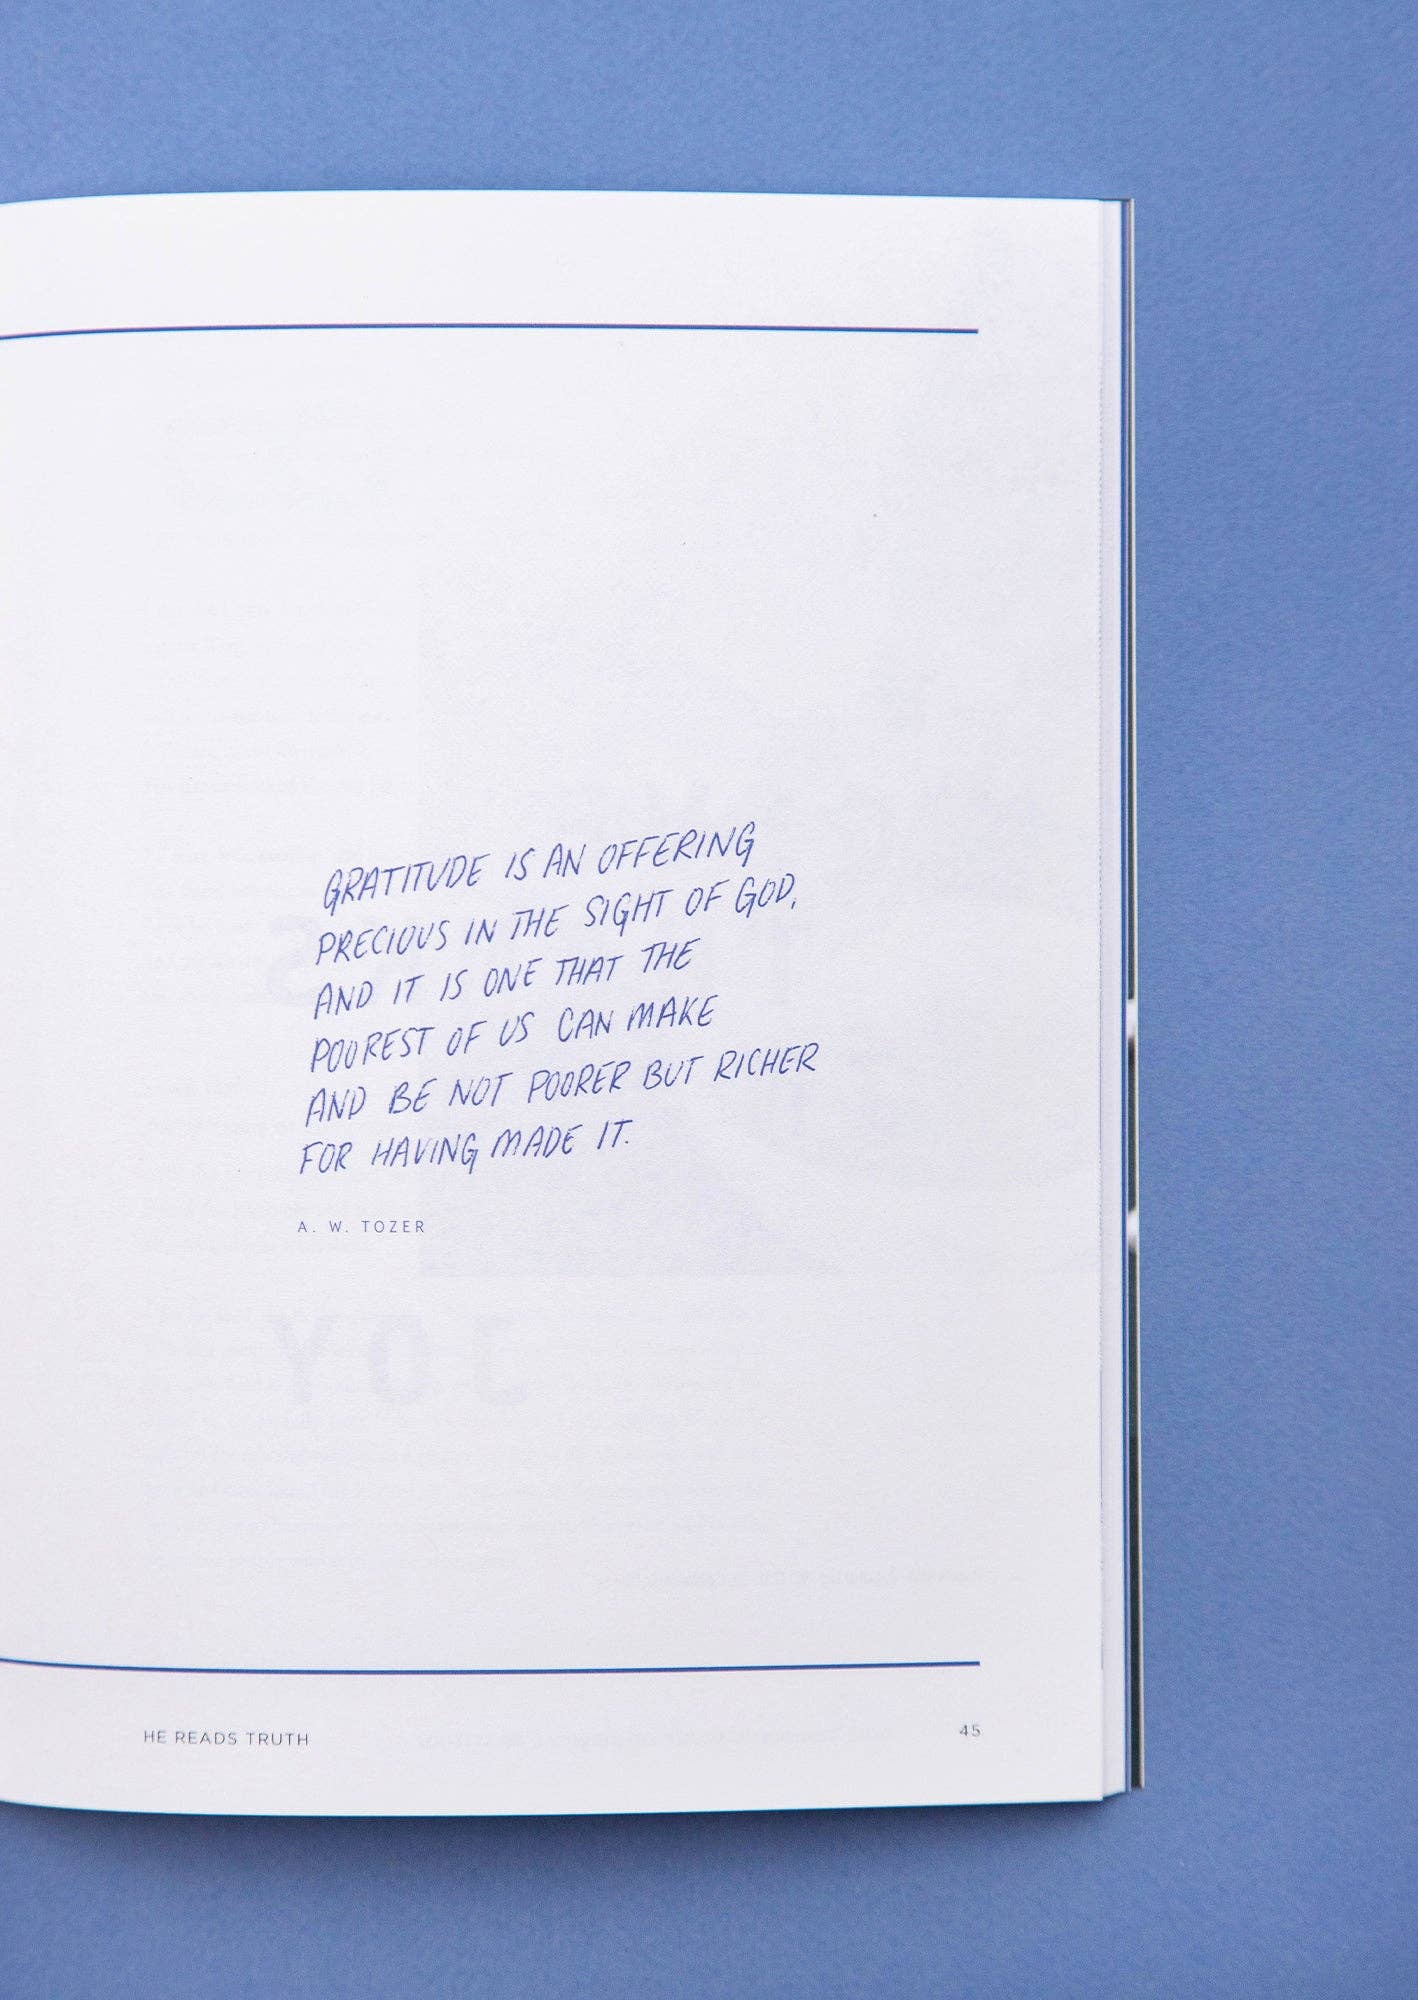 GRATITUDE IS AN OFFERING
PRECIOUS IN THE SIGHT OF GOD,
AND IT IS ONE THAT THE
POOREST OF US CAN MAKE
AND BE NOT POORER BUT RICHER
FOR HAVING MADE IT.
A. W. TOZER
JOY
HE READS TRUTH
45